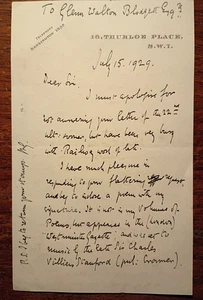 To Glenn Walton Blodgett Esqre
TELEPHONE
KENSINGTON
10, THURLOE PLACE,
S.W.7.
July 15. 1929.
Dear Sir
I must apologise for
not answering your letter of the 22nd
ult. sooner, but have been very busy
with Railway work of late.
I have much pleasure in
responding to your flattering request,
and beg to enclose a poem with my
signature. It is not in my Volume of
Poems, but appeared in the
Westminster Gazette, and was set to
music by the late Sir Charles
Villiers Stanford (publ. Cramer).
P.S. I beg to return your stamps.